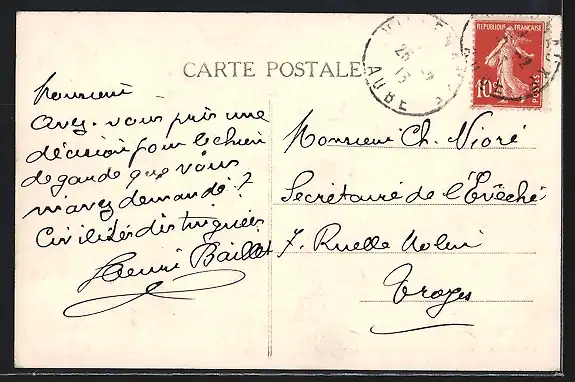 CARTE POSTALE
REPUBLIQUE FRANÇAISE
10c
POSTES
AUBE
Monsieur
avez-vous pris une
décision pour le chien
de garde que vous
m'avez demandé ?
Civilités distinguées
Henri Baillot
Monsieur Ch. Nioré
Secrétaire de l'Evêché
7. Ruelle
Troyes